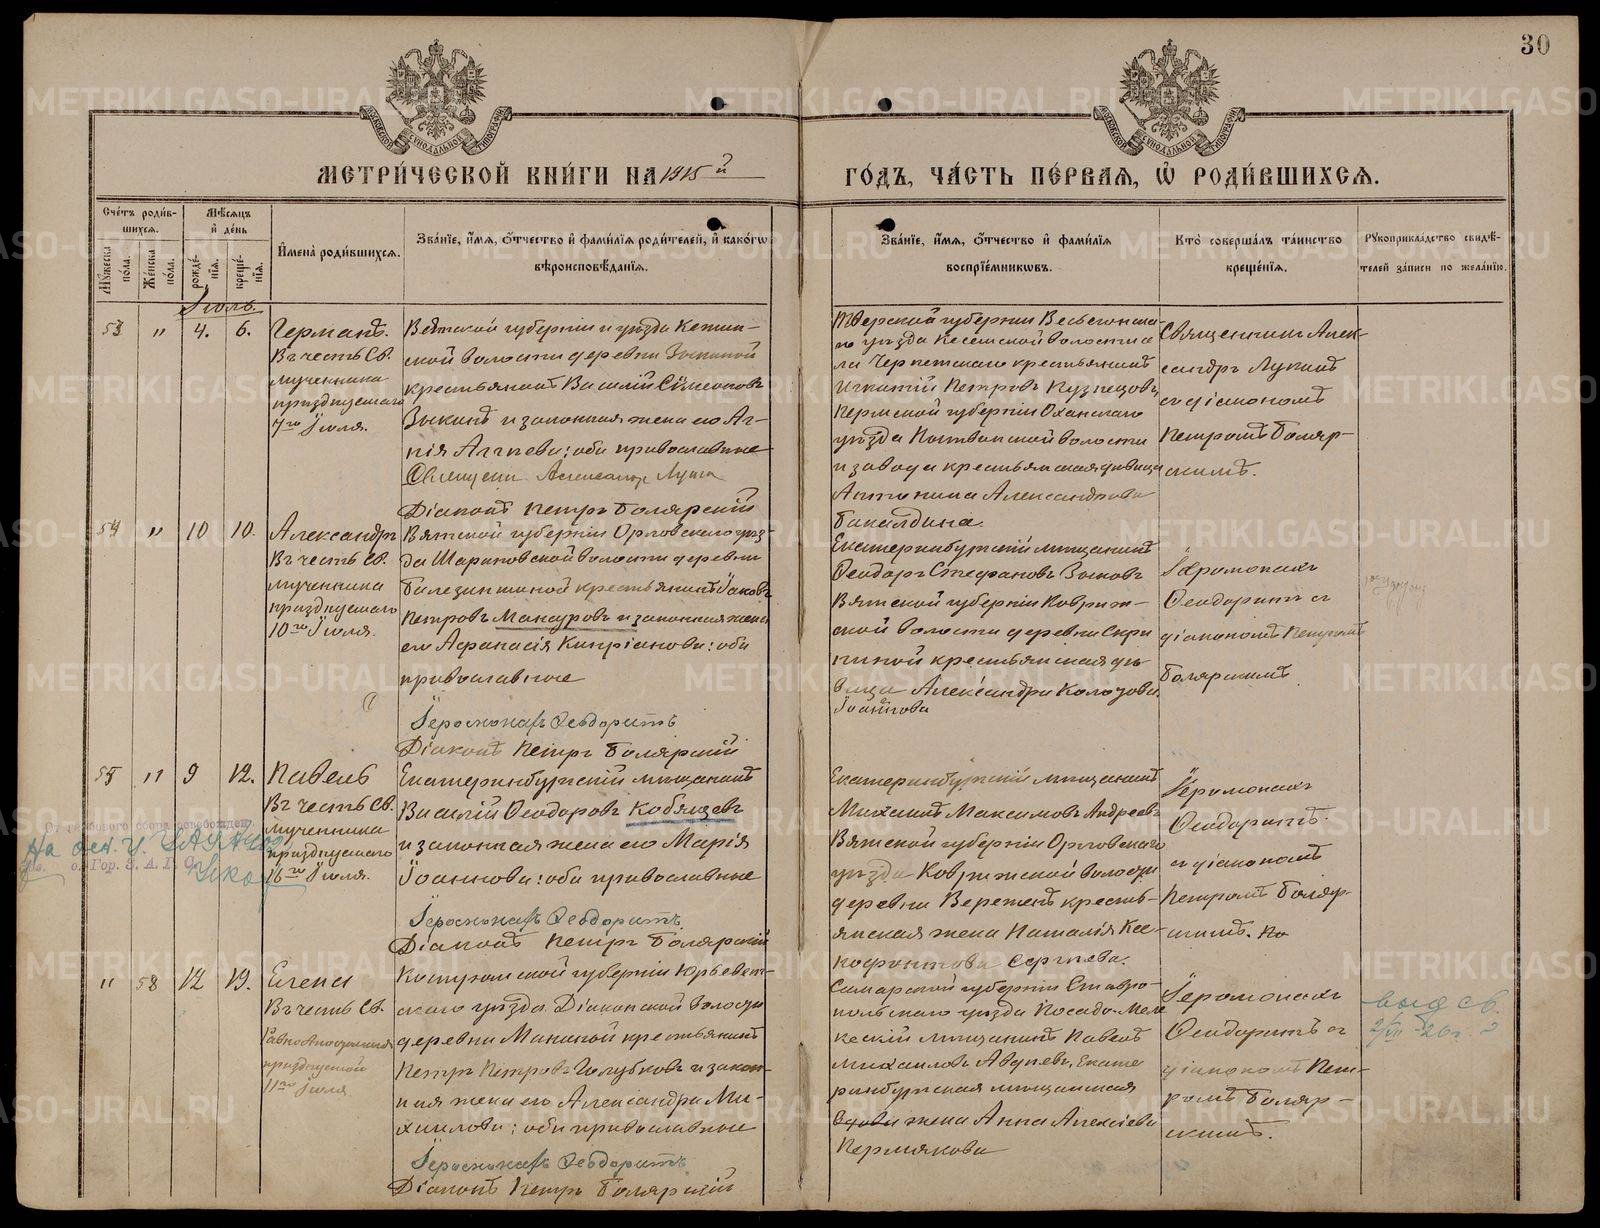 30
МЕТРИ́ЧЕСКОЙ КНИ́ГИ НА 1915 й ГО́ДЪ, ЧА́СТЬ ПЕ́РВАЯ, Ѡ РОДИ́ВШИХСЯ.
Сче́тъ роди́в-
шихся.
Му́жеска по́ла.
Же́нска по́ла.
Мѣ́сяцъ
и де́нь
рожде́-
нїя.
креще́-
нїя.
И҆мена̀ роди́вшихся.
Зва́нїе, и҆́мя, ѻ҆́тчество и҆ фами́лїя роди́телей, и҆ како́гѡ
вѣроисповѣ́данїя.
Зва́нїе, и҆́мя, ѻ҆́тчество и҆ фами́лїя
воспрїе́мникѡвъ.
Кто̀ соверша́лъ та́инство
креще́нїя.
Рꙋкоприкла́дство свидѣ́-
телей за́писи по жела́нїю.
Іюль.
53 " 4. 6.
Германъ.
Въ честь Св.
мученника
празднуемаго
7го Іюля.
Вятской губерніи и уѣзда Кстин-
ской волости деревни Зыкиной
крестьянинъ Василій Сѵмеоновъ
Зыкинъ и законная жена его Аг-
нія Аггѣева: оба православные
Діаконъ Петръ Болярскій
Тверской губерніи Весьегонска-
го уѣзда Кесемской волости се
крестьянинъ
Игнатій Петровъ Кузнецовъ,
Пермской губерніи Оханскаго
уѣзда волости
и завода крестьянская дѣвица
Антонина Александрова
Бакалдина
Священникъ Алек-
сандръ Лукинъ
съ діакономъ
Петромъ Боляр-
скимъ.
54 " 10 10.
Александръ
Въ честь Св.
мученника
празднуемаго
10го Іюля.
Вятской губерніи Орловскаго уѣз-
да Шараповской волости деревни
крестьянинъ Іаковъ
Петровъ Макауровъ и законная жена
его Афанасія Кипріанова: оба
православные
Іеромонахъ Ѳеодоритъ
Діаконъ Петръ Болярскій
Екатеринбургскій мѣщанинъ
Ѳеодоръ Стефановъ Зыковъ
Вятской губерніи Коврож-
ской волости деревни Скри
пиной крестьянская дѣ-
вица Александра Колозова
Іоаннова
Іеромонахъ
Ѳеодоритъ съ
діакономъ Петромъ
Болярскимъ
55 " 9 12.
Павелъ
Въ честь Св.
мученника
празднуемаго
16го Іюля.
Екатеринбургскій мѣщанинъ
Василій Ѳеодоровъ Кобяшевъ
и законная жена его Марія
Іоаннова: оба православные
Іеромонахъ Ѳеодоритъ
Діаконъ Петръ Болярскій
Екатеринбургскій мѣщанинъ
Михаилъ Максимовъ Андреевъ
Вятской губерніи Орловскаго
уѣзда волости
деревни крестьь-
янская жена Наталія Кса-
нофонтова Сергѣева.
Іеромонахъ
Ѳеодоритъ.
съ діакономъ
Петромъ Боляр-
скимъ.
От гербового сбора освобожден
о. Гор. З. А. Г. С.
" 58 12 19.
Елена
Въ честь Св.
Равноапостольныя
празднуемой
11го Іюля
Костромской губерніи Юрьевец-
скаго уѣзда Діаконской волости
деревни крестьянинъ
Петръ Петровъ Голубковъ и закон-
ная жена его Александра Ми-
хаилова: оба православные
Іеромонахъ Ѳеодоритъ
Діаконъ Петръ Болярскій
Самарской губерніи Ставро-
польскаго уѣзда Посада Меле
кескій мѣщанинъ Павелъ
Михаиловъ Авдѣевъ, Екате
ринбургская мѣщанская
жена Анна Алексіева
Пермякова
Іеромонахъ
Ѳеодоритъ съ
діакономъ Пет-
ромъ Боляр-
скимъ.
METRIKI.GASO-URAL.RU